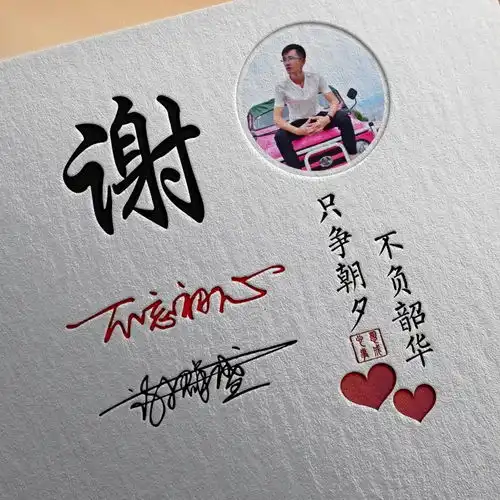 谢
不忘初心
只争朝夕
不负韶华